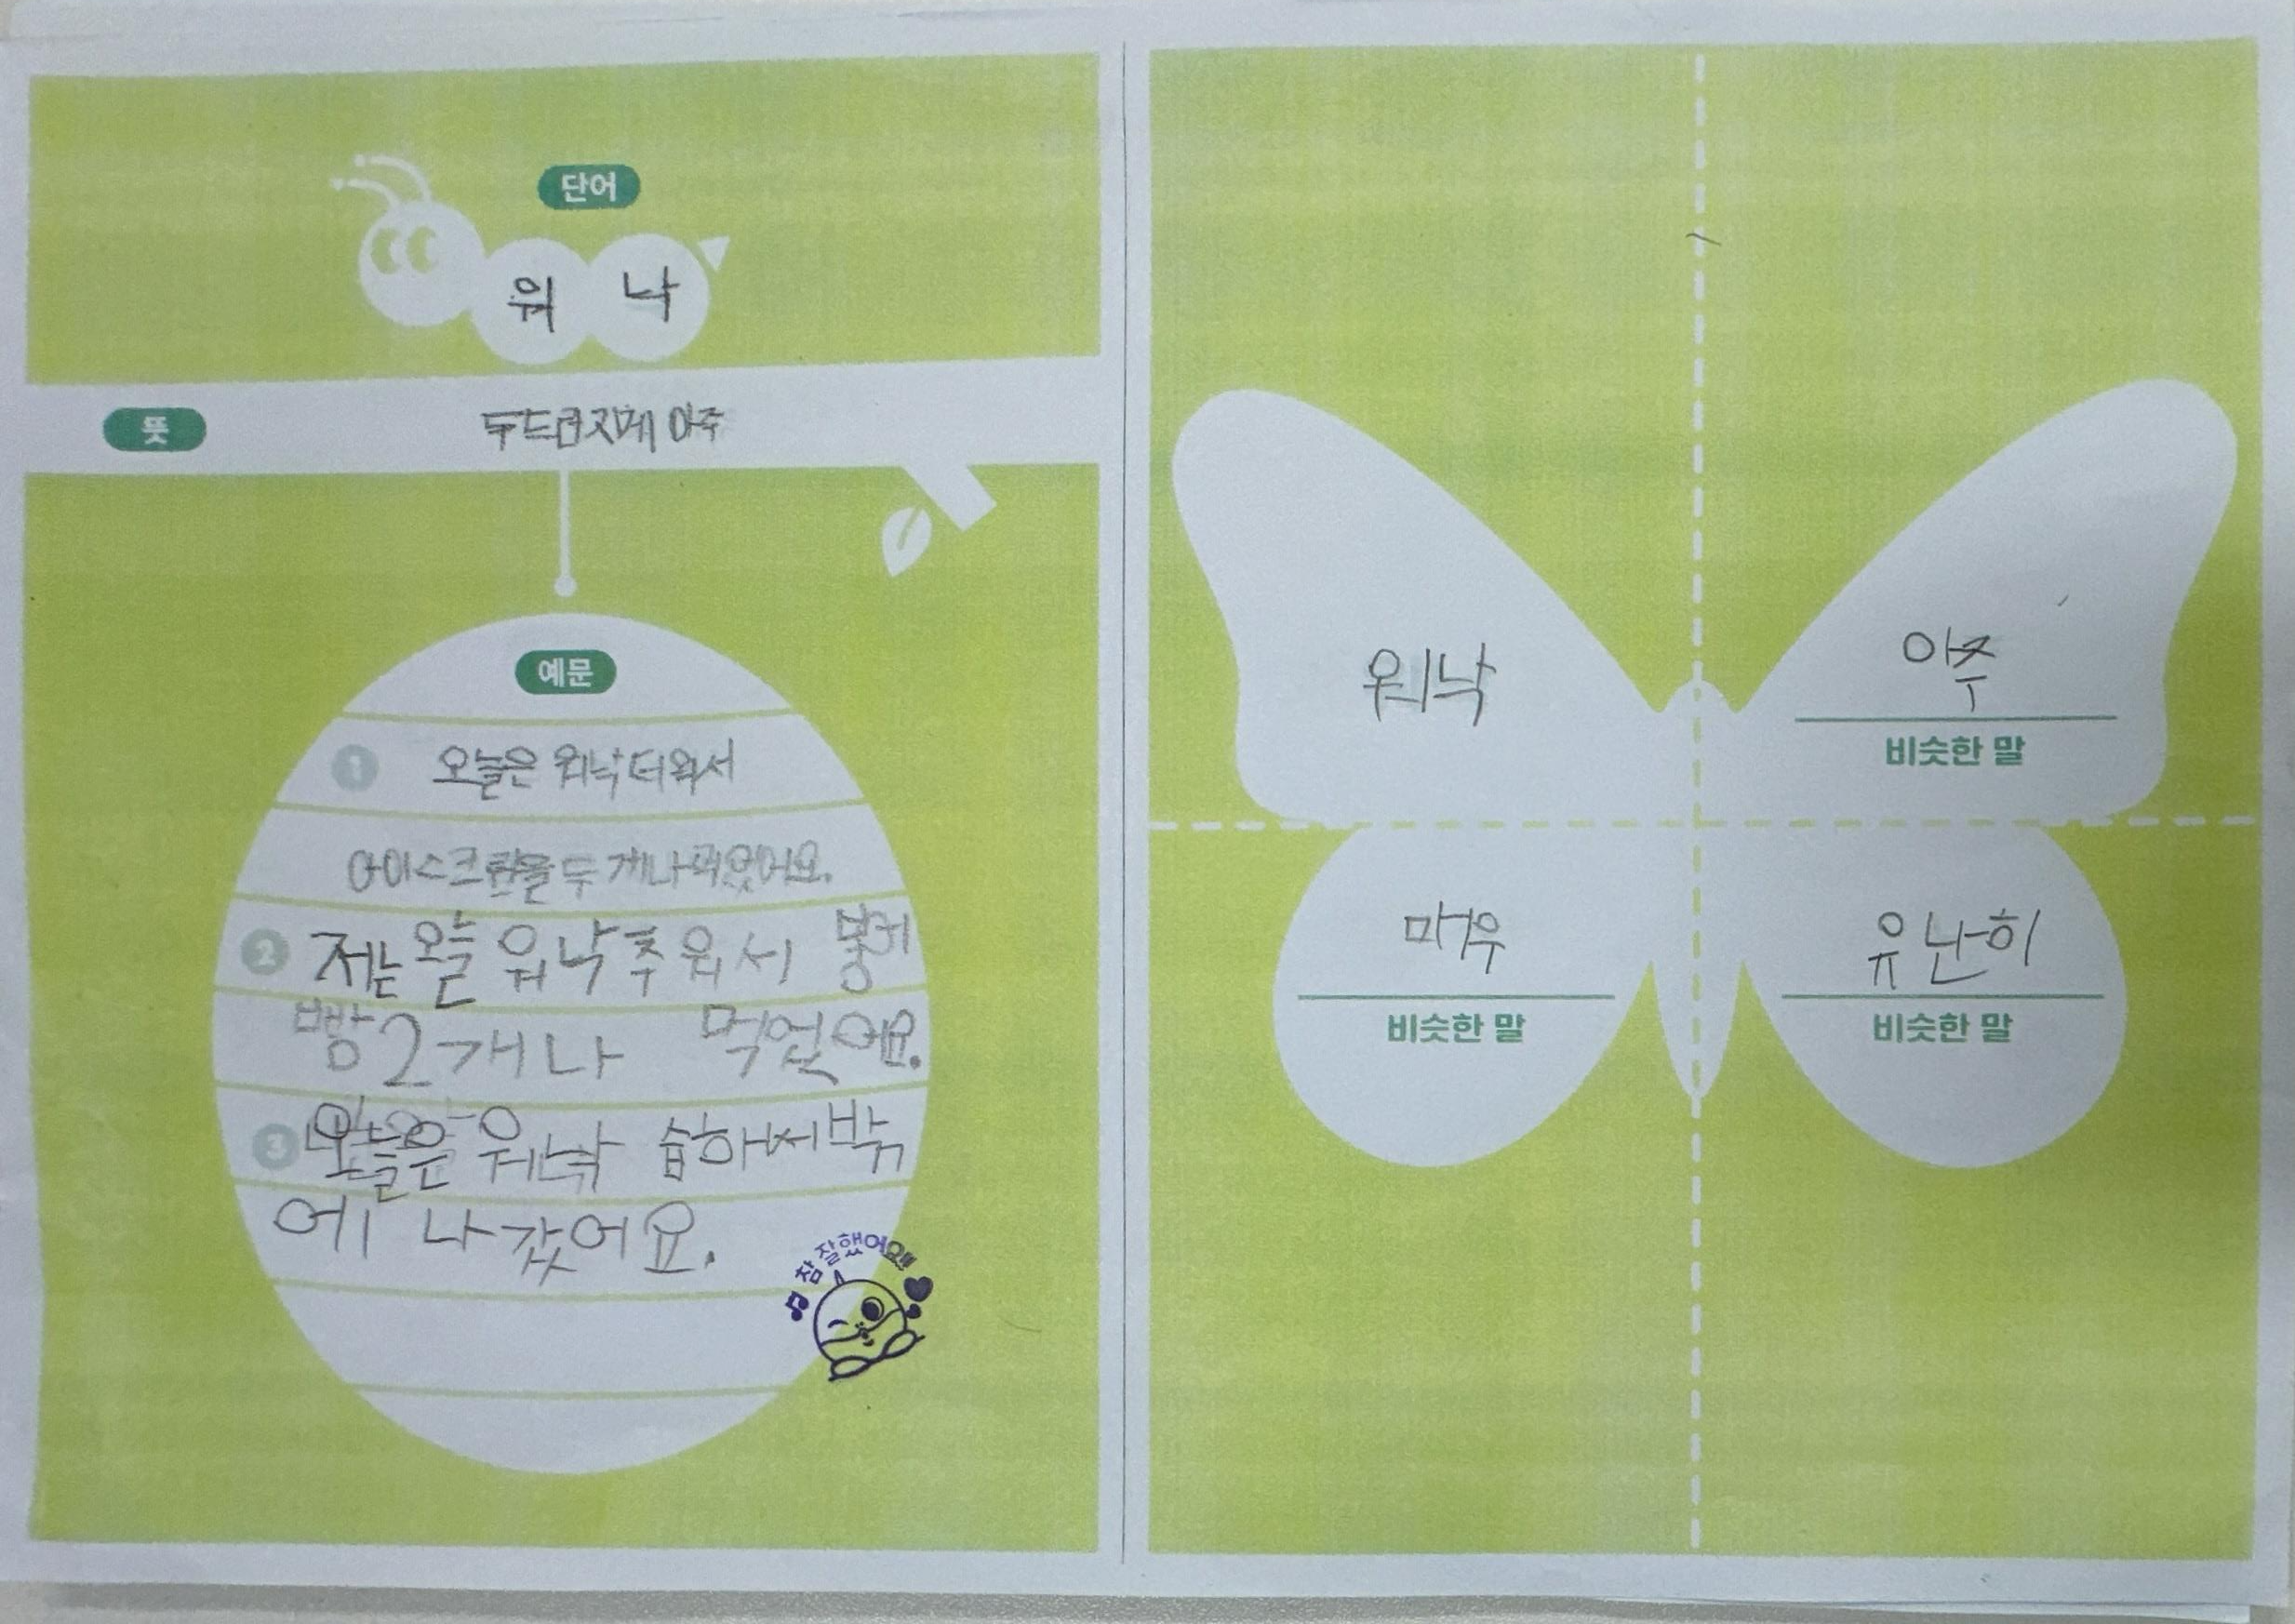 단어
워 나
뜻
두드러지게 아주
예문
1 오늘은 워낙 더워서
아이스크림을 두 개나 먹었어요.
2 저는 오늘 워낙 추워서 붕어
빵 2개나 먹었어요.
3 오늘은 워낙 습해서 밖
에 나갔어요.
참 잘했어요!!
워낙
아주
비슷한 말
매우
비슷한 말
유난히
비슷한 말